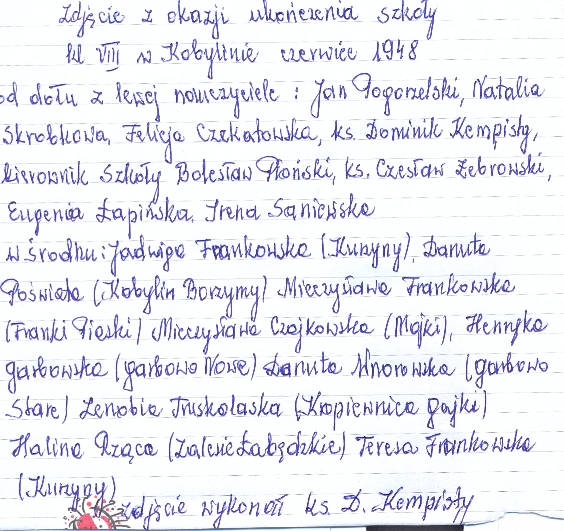 Zdjęcie z okazji ukończenia szkoły
kl VIII w Kobylinie czerwiec 1948
od dołu z lewej nauczyciele: Jan Pogorzelski, Natalia
Skrobkowa, Felicja Czekatowska, ks. Dominik Kempisty,
kierownik szkoły Bolesław Płoński, ks. Czesław Żebrowski,
Eugenia Łapińska, Irena Saniewska
w środku: Jadwiga Frankowska (Kurzyny), Danuta
Poświata (Kobylin Borzymy) Mieczysława Frankowska
(Franki Pieski) Mieczysława Czajkowska (Mojki), Henryka
Garbowska (Garbowo Nowe) Danuta Mnorowska (Garbowo
Stare) Zenobia Truskolaska (Kropiewnica Gajki)
Halina Rząca (Zalesie Łabędzkie) Teresa Frankowska
(Kurzyny)
zdjęcie wykonał ks. D. Kempisty